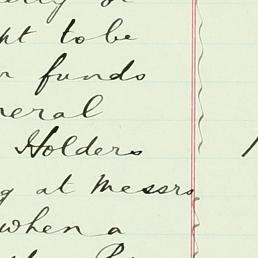 ht to be
funds
neral
Holders
g at Messrs
when a